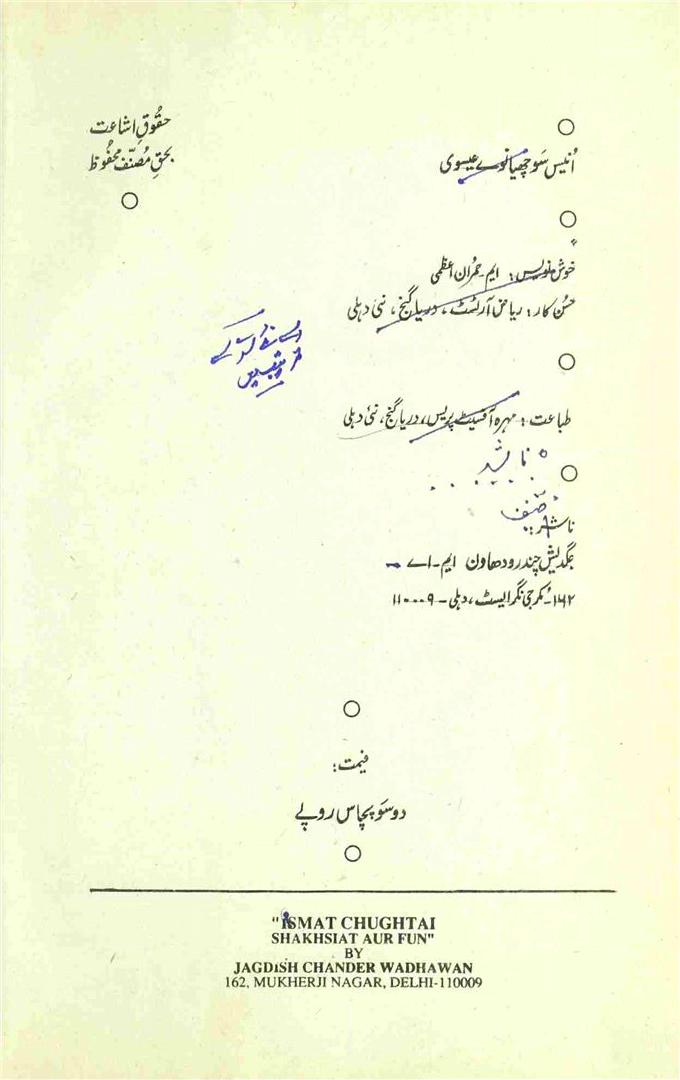 حقوقِ اشاعت
بحقِ مصنّف محفوظ
اُنیس سَو چھیانوے عیسوی
خوش نویس: ایم۔ عمران اعظمی
حسن کار: ریاض آرٹسٹ، دریا گنج، نئی دہلی
طباعت: مہرہ آفسیٹ پریس، دریا گنج، نئی دہلی
ناشر:
جگدیش چندر ودھاون ایم۔ اے
۱۶۲۔ مُکرجی نگر ایسٹ، دہلی۔ ۱۱۰۰۰۹
قیمت:
دو سَو پچاس روپے
"ISMAT CHUGHTAI
SHAKHSIAT AUR FUN"
BY
JAGDISH CHANDER WADHAWAN
162, MUKHERJI NAGAR, DELHI-110009